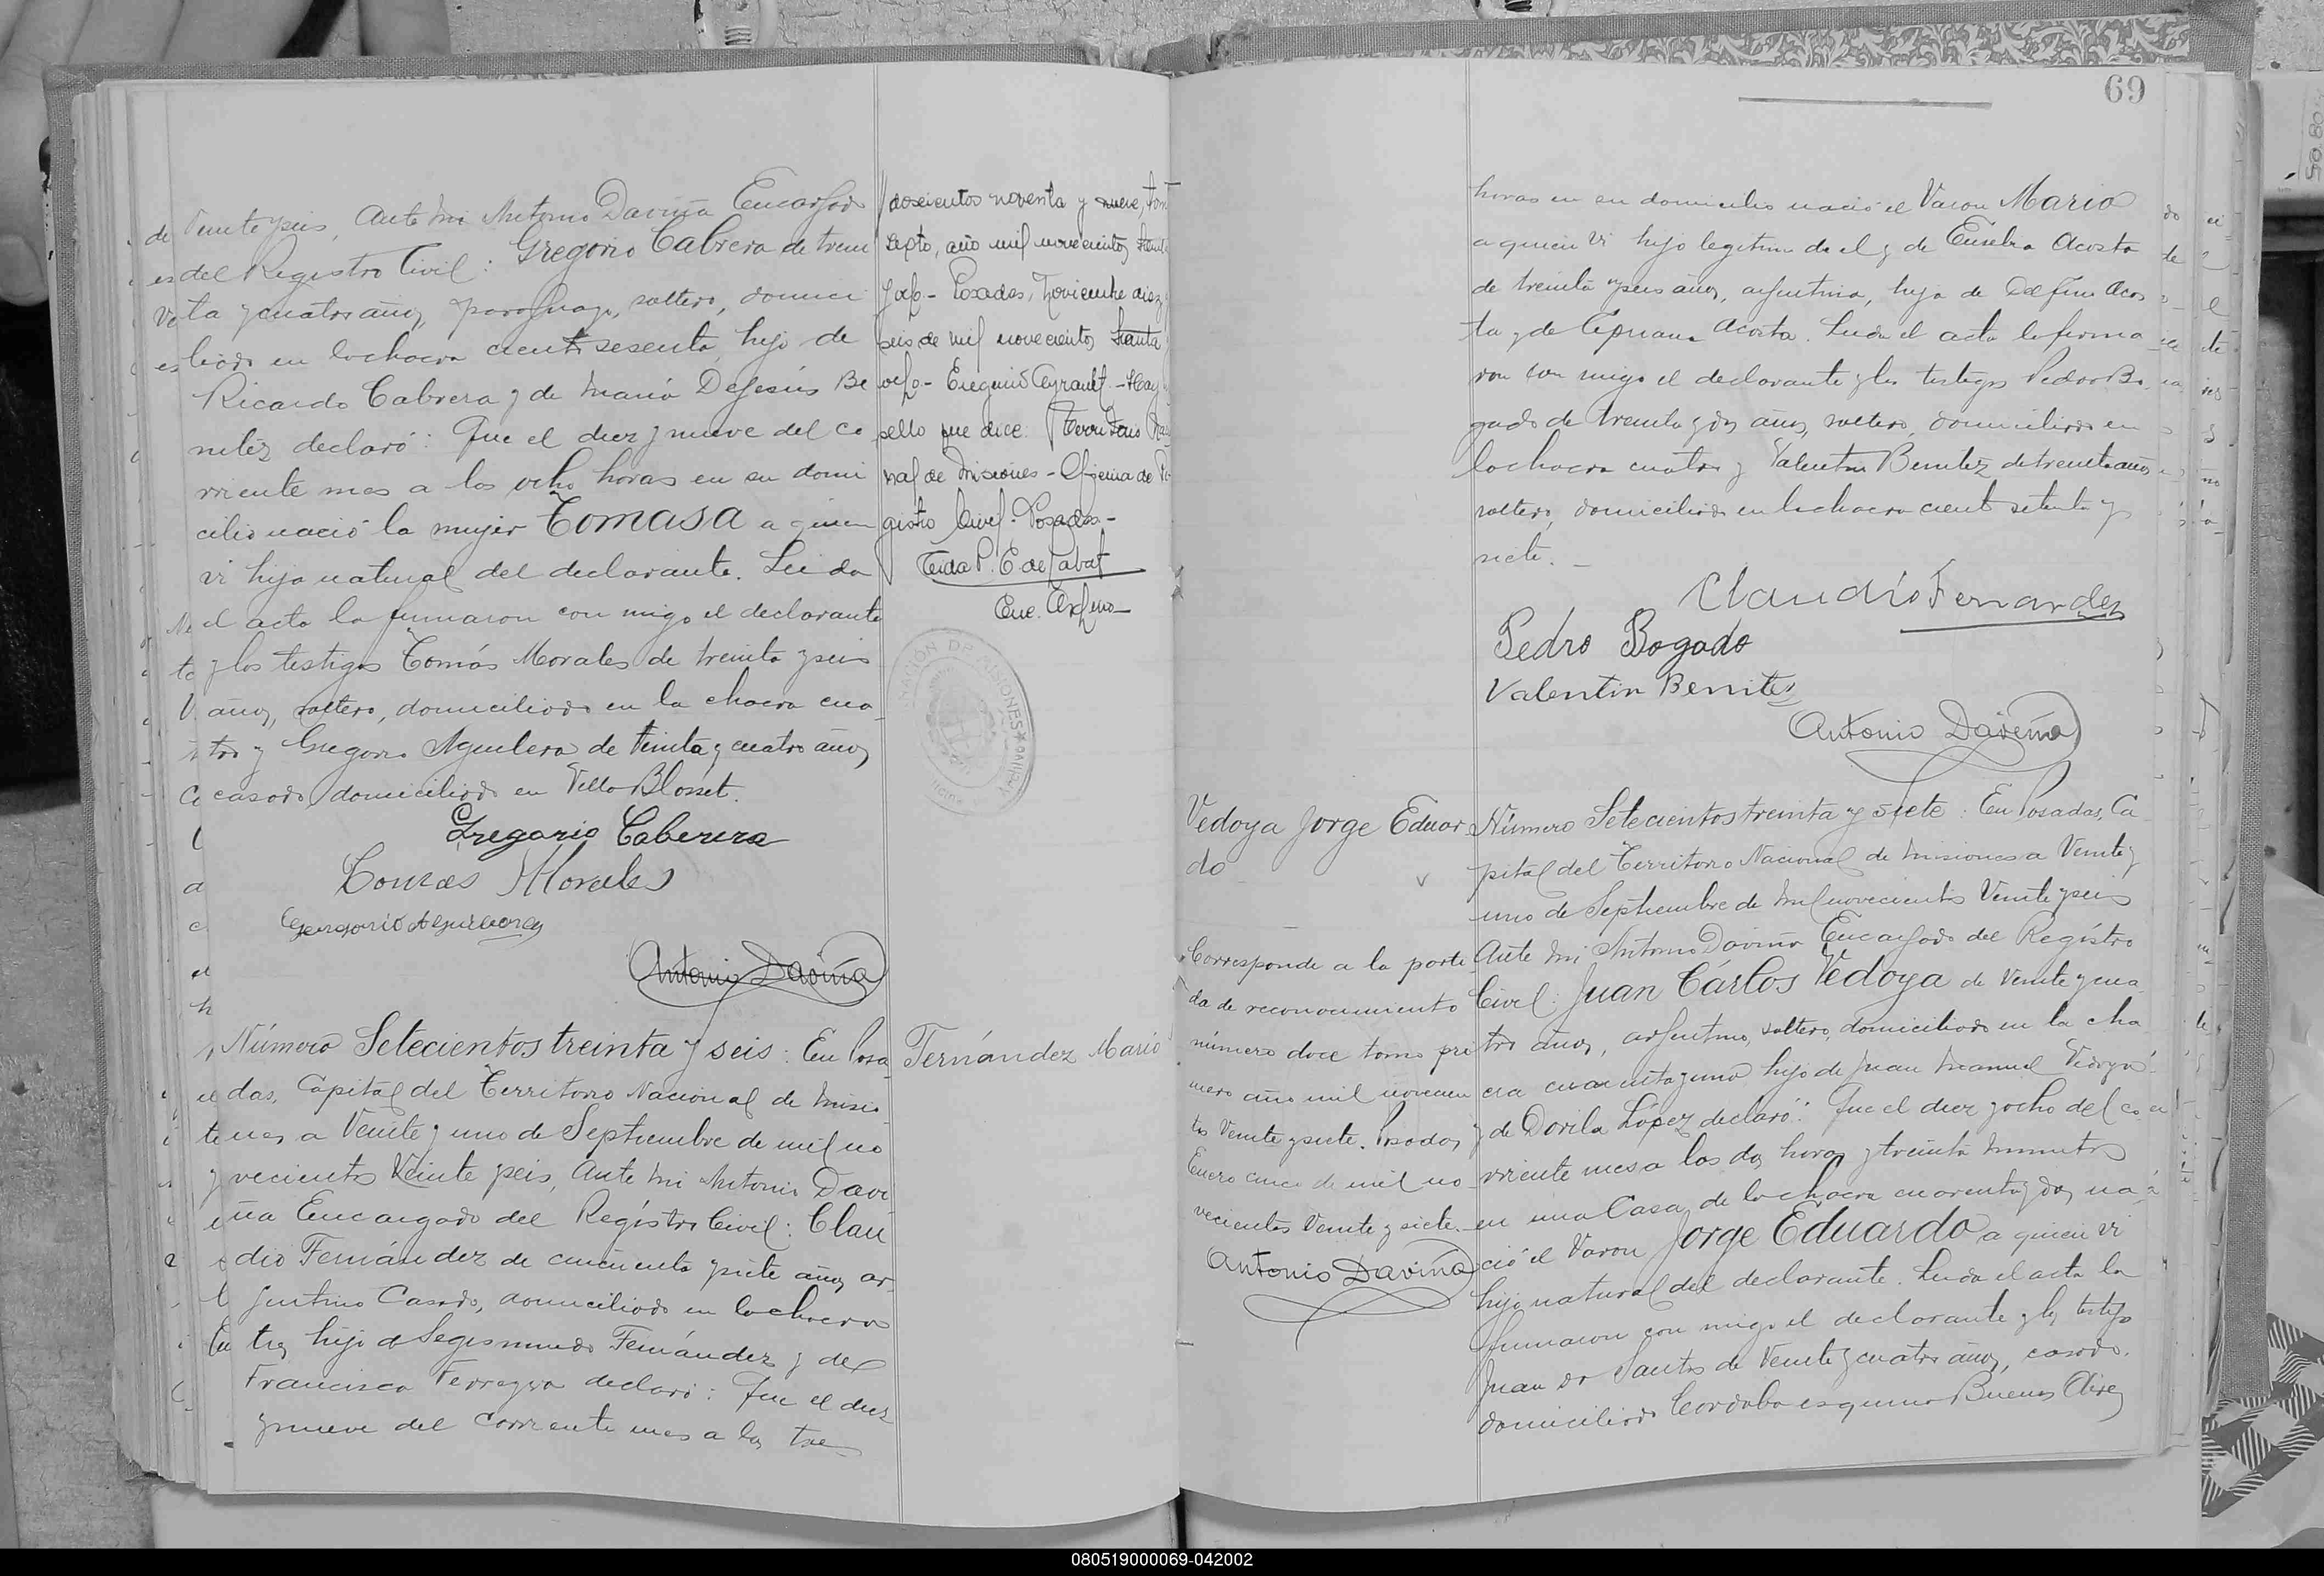 Veinte y seis, Ante mi Antonio Daviña Encargado
del Registro Civil: Gregorio Cabrera de trein
ta y cuatro años, paraguayo, soltero, domici
liado en la chacra ciento sesenta, hijo de
Ricardo Cabrera y de María De Jesús Be
nítez declaró: Que el diez y nueve del co
rriente mes a las ocho horas en su domi
cilio nació la mujer Tomasa a quien
vi hija natural del declarante. Leida
el acta la firmaron con migo el declarante
y los testigos Tomás Morales de treinta y seis
años, soltero, domiciliado en la chacra cua
tro y Gregorio Aguilera de treinta y cuatro años,
casado, domiciliado en Villa Blosset.
Gregorio Caberera
Tomas Morales
Antonio Daviña
doscientos noventa y nueve, tom
sexto, año mil novecientos treinta
y ocho - Posadas, Noviembre diez y
seis de mil novecientos treinta y
ocho - Ezequiel Ayrault - Hay
sello que dice: Territorio Nacio
nal de Misiones - Oficina de Re
gistro Civil - Posadas -
Número Setecientos treinta y seis: En Posa
das, Capital del Territorio Nacional de Misio
nes, a Veinte y uno de Septiembre de mil no
vecientos Veinte y seis, Ante mi Antonio Davi
ña Encargado del Registro Civil: Clau
dio Fernández de cincuenta y siete años, ar
gentino Casado, domiciliado en la chacra
tres hijo de Segismundo Fernández y de
Francisca Ferreyra declaró: Que el diez
y nueve del corriente mes a las tres
Fernández Mario
69
horas en su domicilio nació el Varon Mario
a quien vi hijo legitimo de el y de Eusebia Acosta
de treinta y seis años, argentina, hija de Delfino Acos
ta y de Cipriana Acosta. Leida el acta la firma
ron con migo el declarante y los testigos Pedro Bo
gado de treinta y dos años, soltero, domiciliado en
la chacra cuatro y Valentin Benitez de treinta años
soltero, domiciliado en la chacra ciento setenta y
siete.
Claudio Fernandez
Pedro Bogado
Valentin Benites
Antonio Daviña
Vedoya Jorge Eduar
do
Corresponde a la parti
da de reconocimiento
número doce tomo pri
mero año mil novecien
tos Veinte y siete. Posadas,
Enero cinco de mil no
vecientos Veinte y siete.
Antonio Daviña
Número Setecientos treinta y siete: En Posadas, Ca
pital del Territorio Nacional de Misiones a Veinte y
uno de Septiembre de mil novecientos Veinte y seis
Ante mi Antonio Daviña Encargado del Registro
Civil: Juan Cárlos Vedoya de Veinte y cua
tro años, argentino, soltero, domiciliado en la cha
cra cuarenta y una hijo de Juan Manuel Vedoya
y de Dorila López declaró: Que el diez y ocho del co
rriente mes a las dos horas y treinta minutos
en una Casa de la chacra cuarenta y dos, na
ció el Varon Jorge Eduardo a quien vi
hijo natural del declarante. Leida el acta la
firmaron con migo el declarante y los testigos
Juan do Santos de Veinte y cuatro años, casado,
domiciliado Cordoba esquina Buenos Aires
080519000069-042002